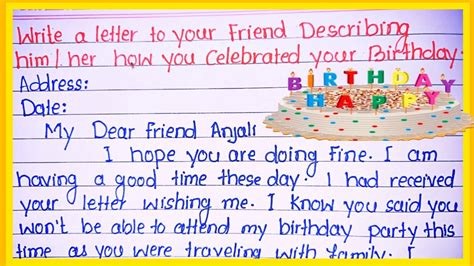 Write a letter to your Friend Describing
him/her how you Celebrated your Birthday.
Address:
BIRTHDAY
HAPPY
Date:
My Dear friend Anjali
I hope you are doing fine. I am
having a good time these day. I had received
your letter wishing me. I know you said you
won't be able to attend my birthday party this
time as you were traveling with family. I